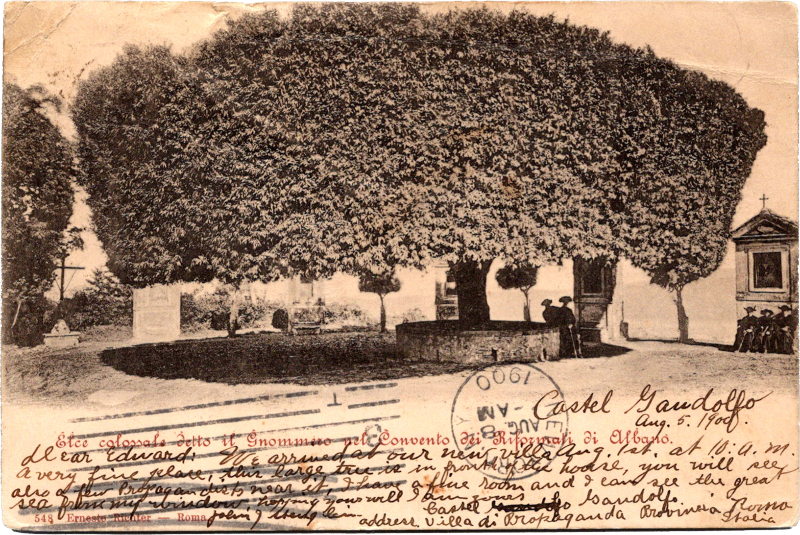 1900
AUG
AM
Castel Gandolfo
Aug. 5. 1900.
Elce colossale detto il Gnommero nel Convento dei Riformati di Albano.
Dear Edward; We arrived at our new villa Aug. 1st. at 10. A. M.
a very fine place, this large tree is in front of the house, you will see
also a few Propagandists near it. I have a fine room and I can see the great
sea from my window, hoping you will I am yours
Castel Gandolfo
548 Ernesto Richter — Roma
address Villa di Propaganda Provincia Roma
Italia